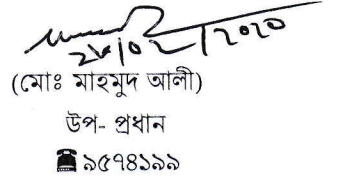 (মোঃ মাহমুদ আলী)
উপ- প্রধান
☎৯৫৭৪১৯৯